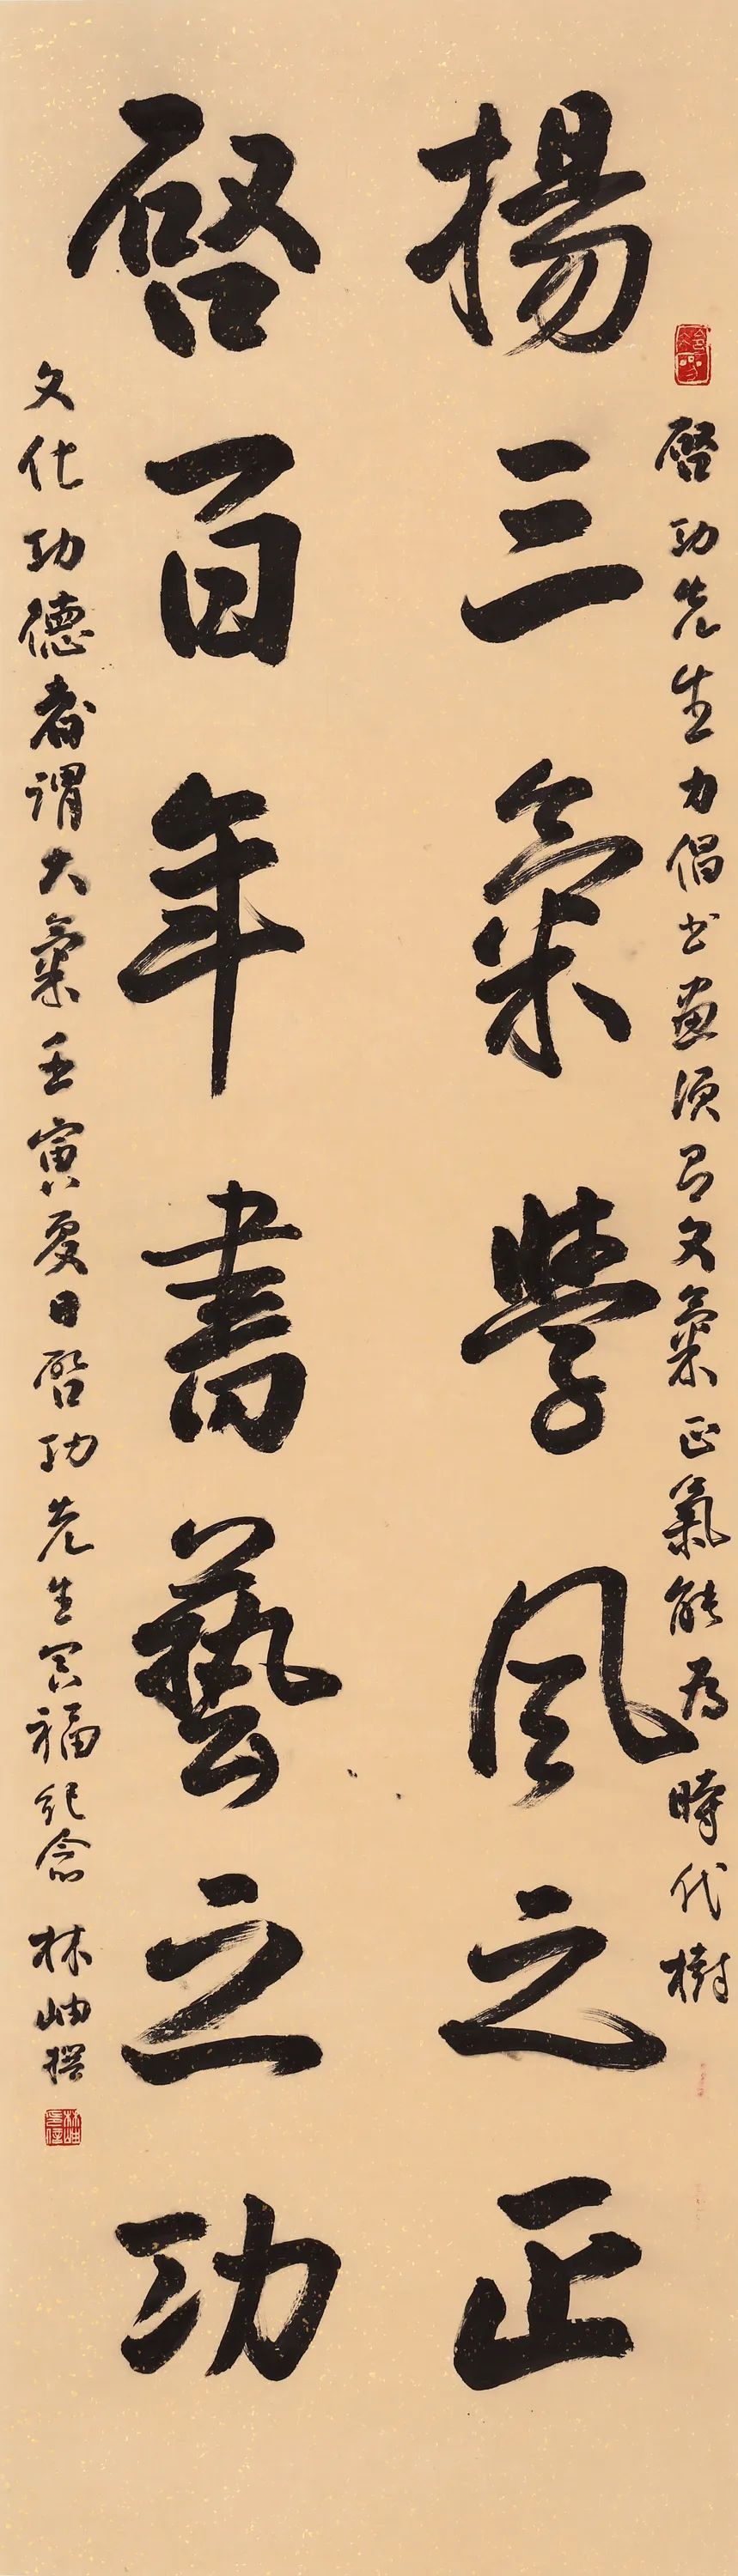 啓功先生力倡书画须有文氣正氣能为時代樹
揚三氣學風之正
啓百年書藝之功
文化功德者謂大氣壬寅夏日啓功先生冥福纪念 林岫撰